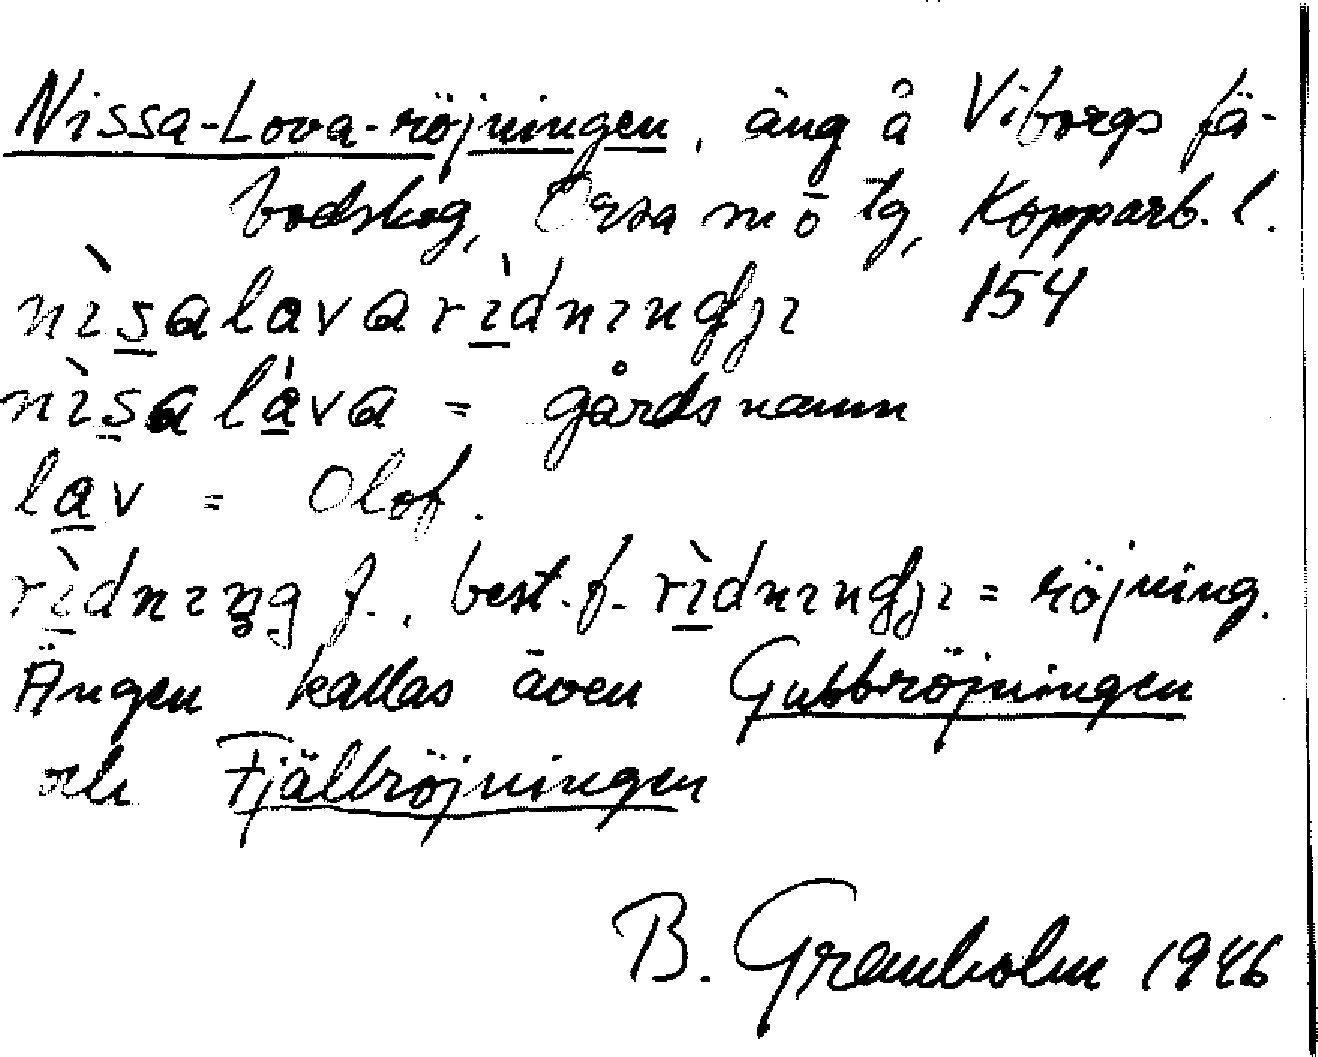 Nissa-Lova-röjningen, äng å Viborgs fä-
bodskog, Orsa sn o tg, Kopparb. l.
nìsalavarìdnındȷı 154
nìsaláva = gårdsnamn
lav = Olof.
rìdnıŋg f., best. f. rìdnındȷı = röjning.
Ängen kallas även Gubbröjningen
och Fjällröjningen
B. Granholm 1946